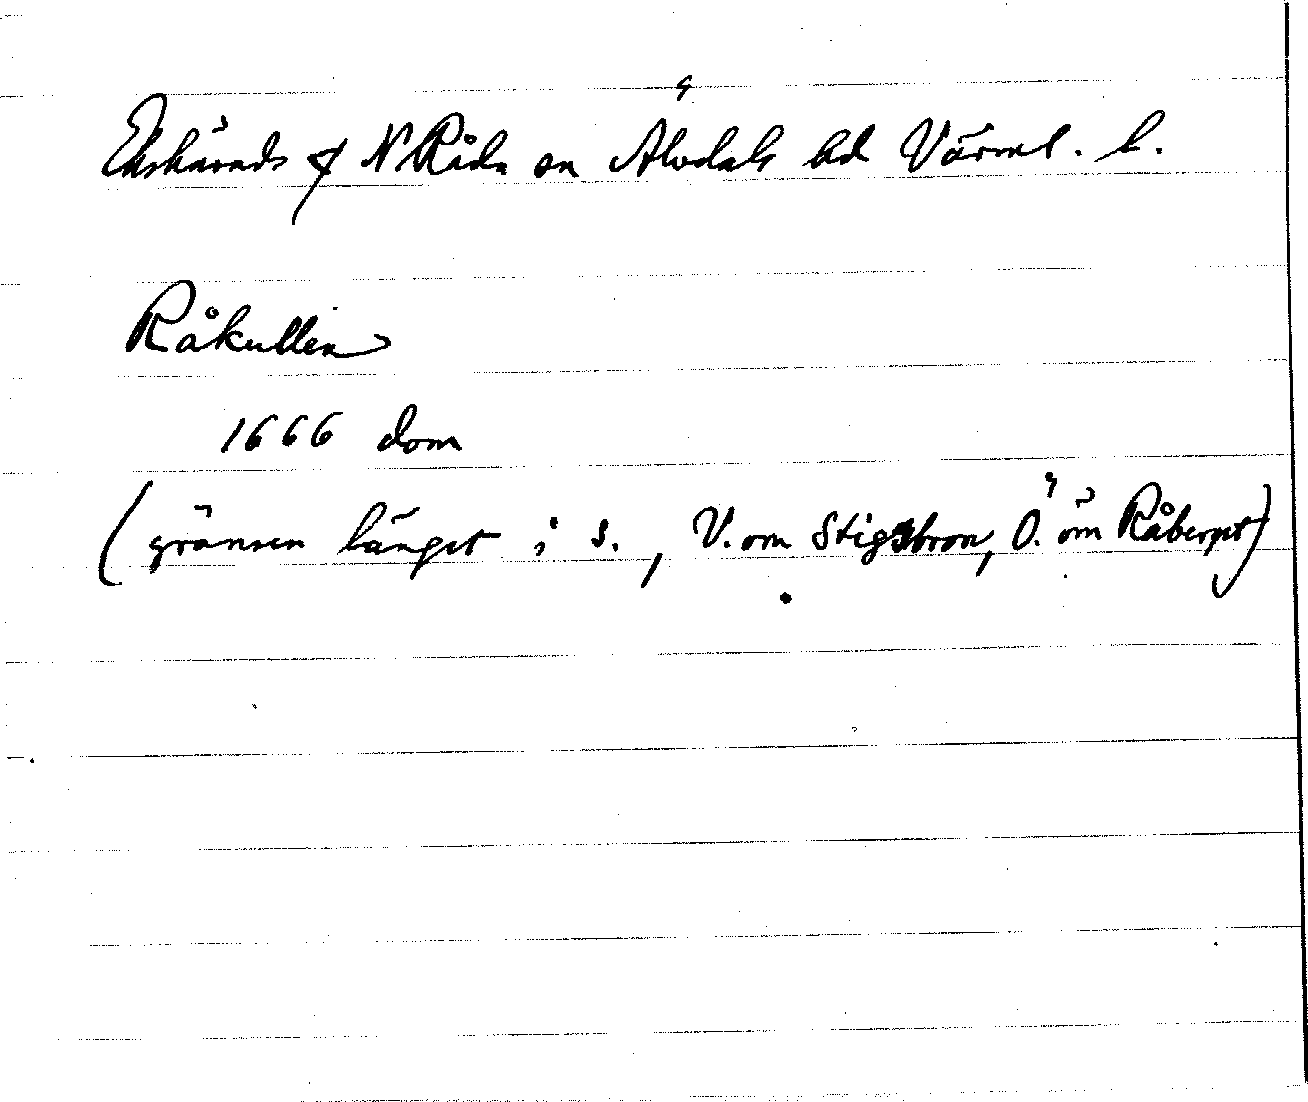 Ekshärads & N Råda sn Älvdals hd Värml. l.
Råkullen
1666 dom
(gränsen längst i s., V. om Stigsbron, Ö. om Råberget)